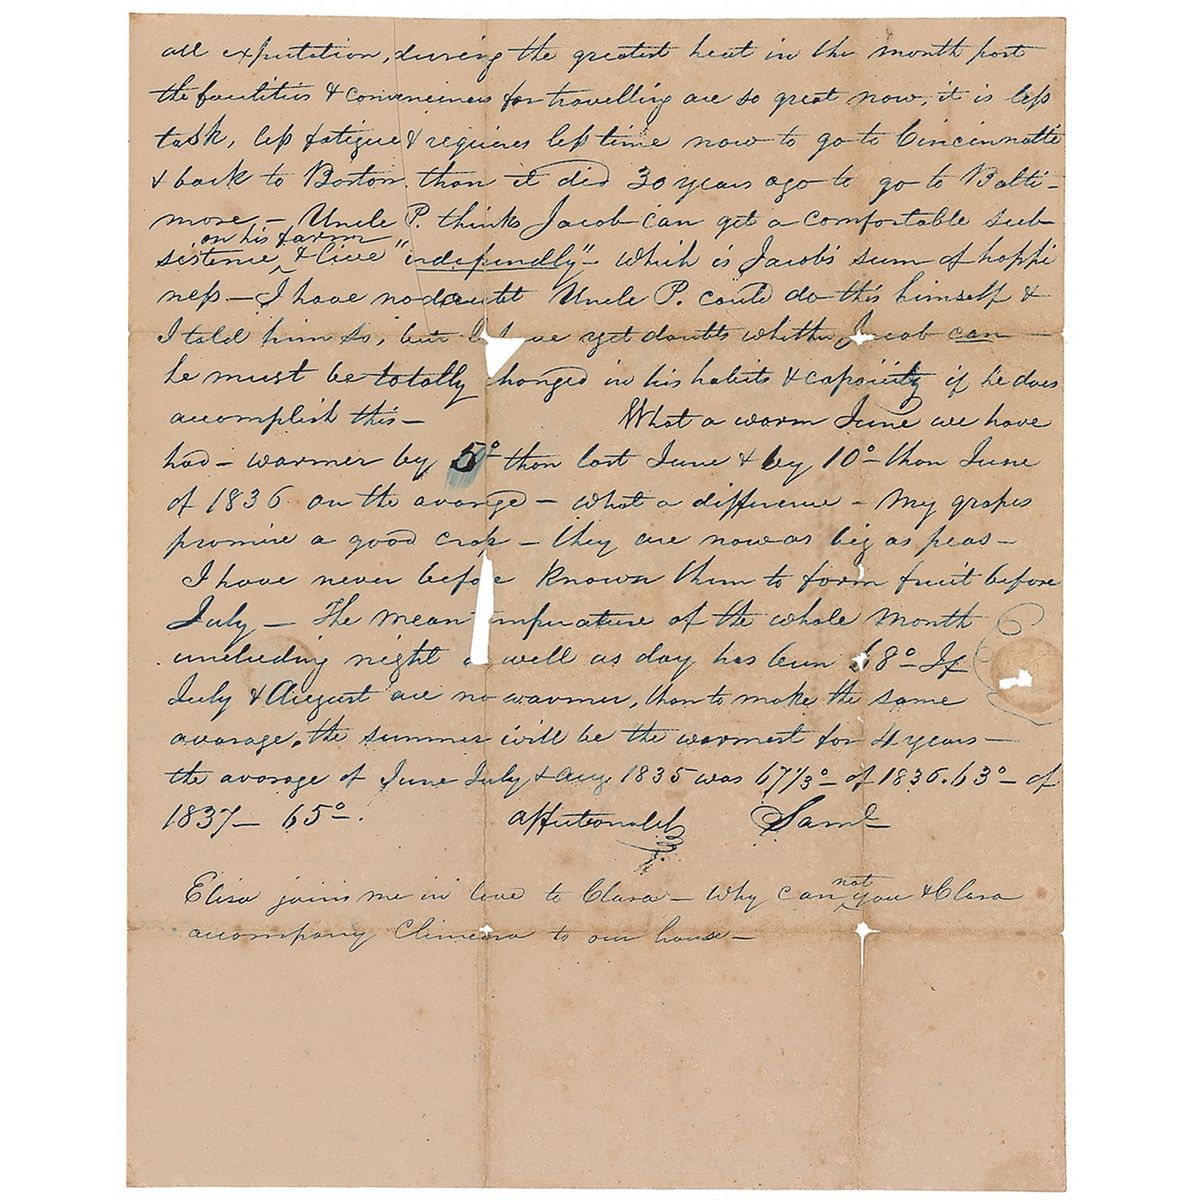 all expectation, during the greatest heat in the month past
the facilities & conveniences for travelling are so great now, it is less
task, less fatigue & requires less time now to go to Cincinnatti
& back to Boston than it did 30 years ago to go to Balti-
more, – Uncle P. thinks Jacob can get a comfortable sub-
on his farm
sistence & live "independly" – which is Jacob's sum of happi
ness – I have no doubt Uncle P. could do this himself &
I told him so, but I have yet doubts whether Jacob can –
he must be totally changed in his habits & capacity if he does
accomplish this – What a warm June we have
had – warmer by 5° than last June & by 10° – than June
of 1836 on the avarage – what a difference – My grapes
promise a good crop – they are now as big as peas –
I have never before known them to form fruit before
July – The mean temperature of the whole month
including night as well as day has been 68° – If
July & August are no warmer, than to make the same
avarage, the summer will be the warmest for 4 years –
the avarage of June July & Aug. 1835 was 67 1/3° of 1836. 63° – of
1837 – 65°. affectionately Saml
Eliza joins me in love to Clara – Why can not you & Clara
accompany to our house –